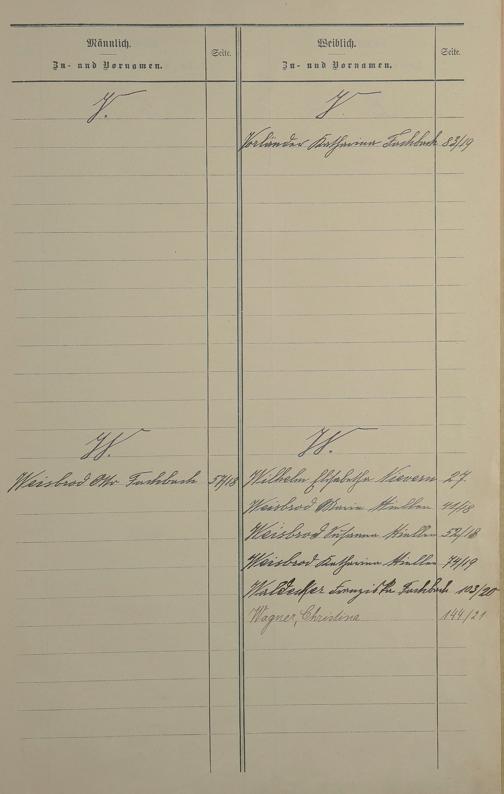 Männlich.
Zu- und Vornamen.
Seite.
Weiblich.
Zu- und Vornamen.
Seite.
V.
V.
Vorländer Katharina Fachbach 83/19
W.
W.
Weisbrod Otto Fachbach 54/18
Wilhelm Elisabetha Nievern 27.
Weisbrod Maria Miellen 41/18
Weisbrod Susanna Miellen 52/18
Weisbrod Katharina Miellen 74/19
Waldecker Franziska Fachbach 103/20
Wagner, Christina 144/21